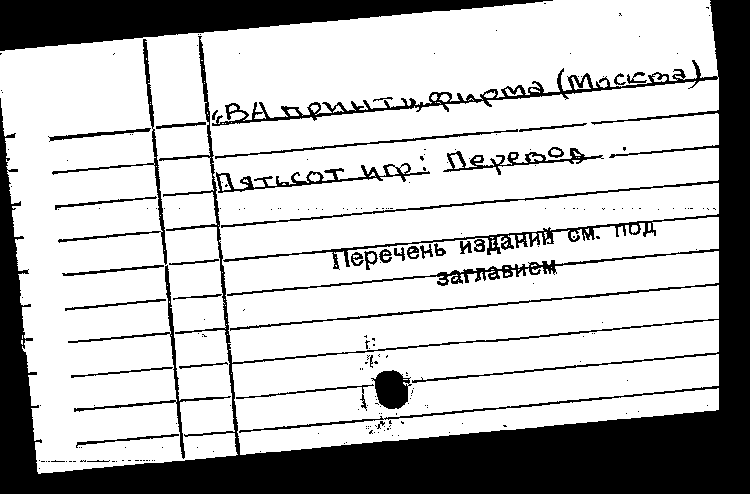 «ВА принт», фирма (Москва)
Пятьсот игр: Перевод ...
Перечень изданий см. под
заглавием